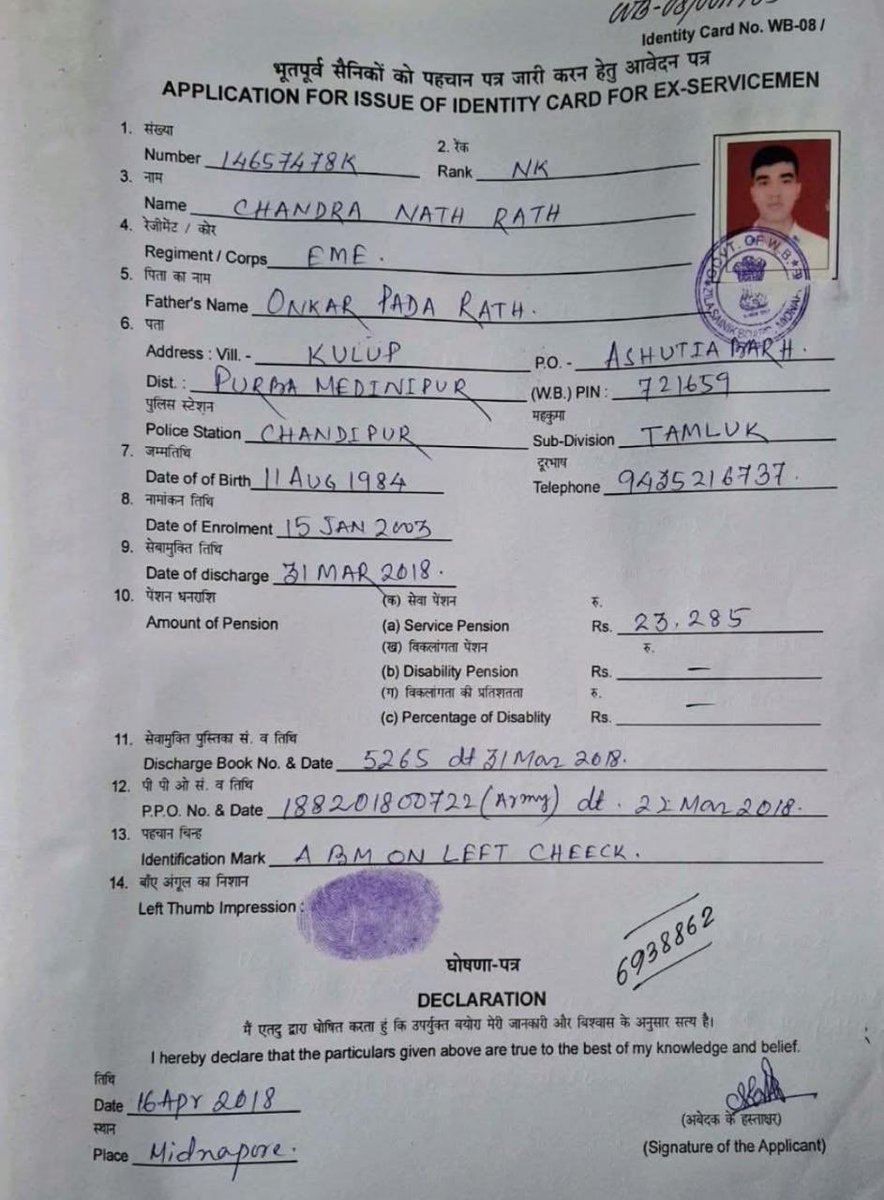 Identity Card No. WB-08 /
भूतपूर्व सैनिकों को पहचान पत्र जारी करन हेतु आवेदन पत्र
APPLICATION FOR ISSUE OF IDENTITY CARD FOR EX-SERVICEMEN
1. संख्या
Number 14657478K
2. रेंक
Rank NK
3. नाम
Name CHANDRA NATH RATH
4. रेजीमेंट / कोर
Regiment / Corps EME.
5. पिता का नाम
Father's Name ONKAR PADA RATH.
6. पता
Address : Vill. - KULUP P.O. - ASHUTIA BARH.
Dist. : PURBA MEDINIPUR (W.B.) PIN : 721659
पुलिस स्टेशन महकुमा
Police Station CHANDIPUR Sub-Division TAMLUK
7. जम्मतिथि दूरभाष
Date of of Birth 11 AUG 1984 Telephone 9435216737.
8. नामांकन तिथि
Date of Enrolment 15 JAN 2003
9. सेबामुक्ति तिथि
Date of discharge 31 MAR 2018.
10. पेंशन धनराशि (क) सेवा पेंशन रु.
Amount of Pension (a) Service Pension Rs. 23.285
(ख) विकलांगता पेंशन रु.
(b) Disability Pension Rs. —
(ग) विकलांगता की प्रतिशतता रु. —
(c) Percentage of Disablity Rs.
11. सेवामुक्ति पुस्तिका सं. व तिथि
Discharge Book No. & Date 5265 dt 31 Mar 2018.
12. पी पी ओ सं. व तिथि
P.P.O. No. & Date 188201800722 (Army) dt. 22 Mar 2018.
13. पहचान चिन्ह
Identification Mark A BM ON LEFT CHEECK.
14. बाँए अंगूल का निशान
Left Thumb Impression :
6938862
घोषणा-पत्र
DECLARATION
मैं एतदु द्वारा घोषित करता हुं कि उपर्युक्त बयोरा मेरी जानकारी और बिश्वास के अनुसार सत्य है।
I hereby declare that the particulars given above are true to the best of my knowledge and belief.
तिथि
Date 16 Apr 2018
(अबेदक के हस्ताक्षर)
स्थान
Place Midnapore.
(Signature of the Applicant)